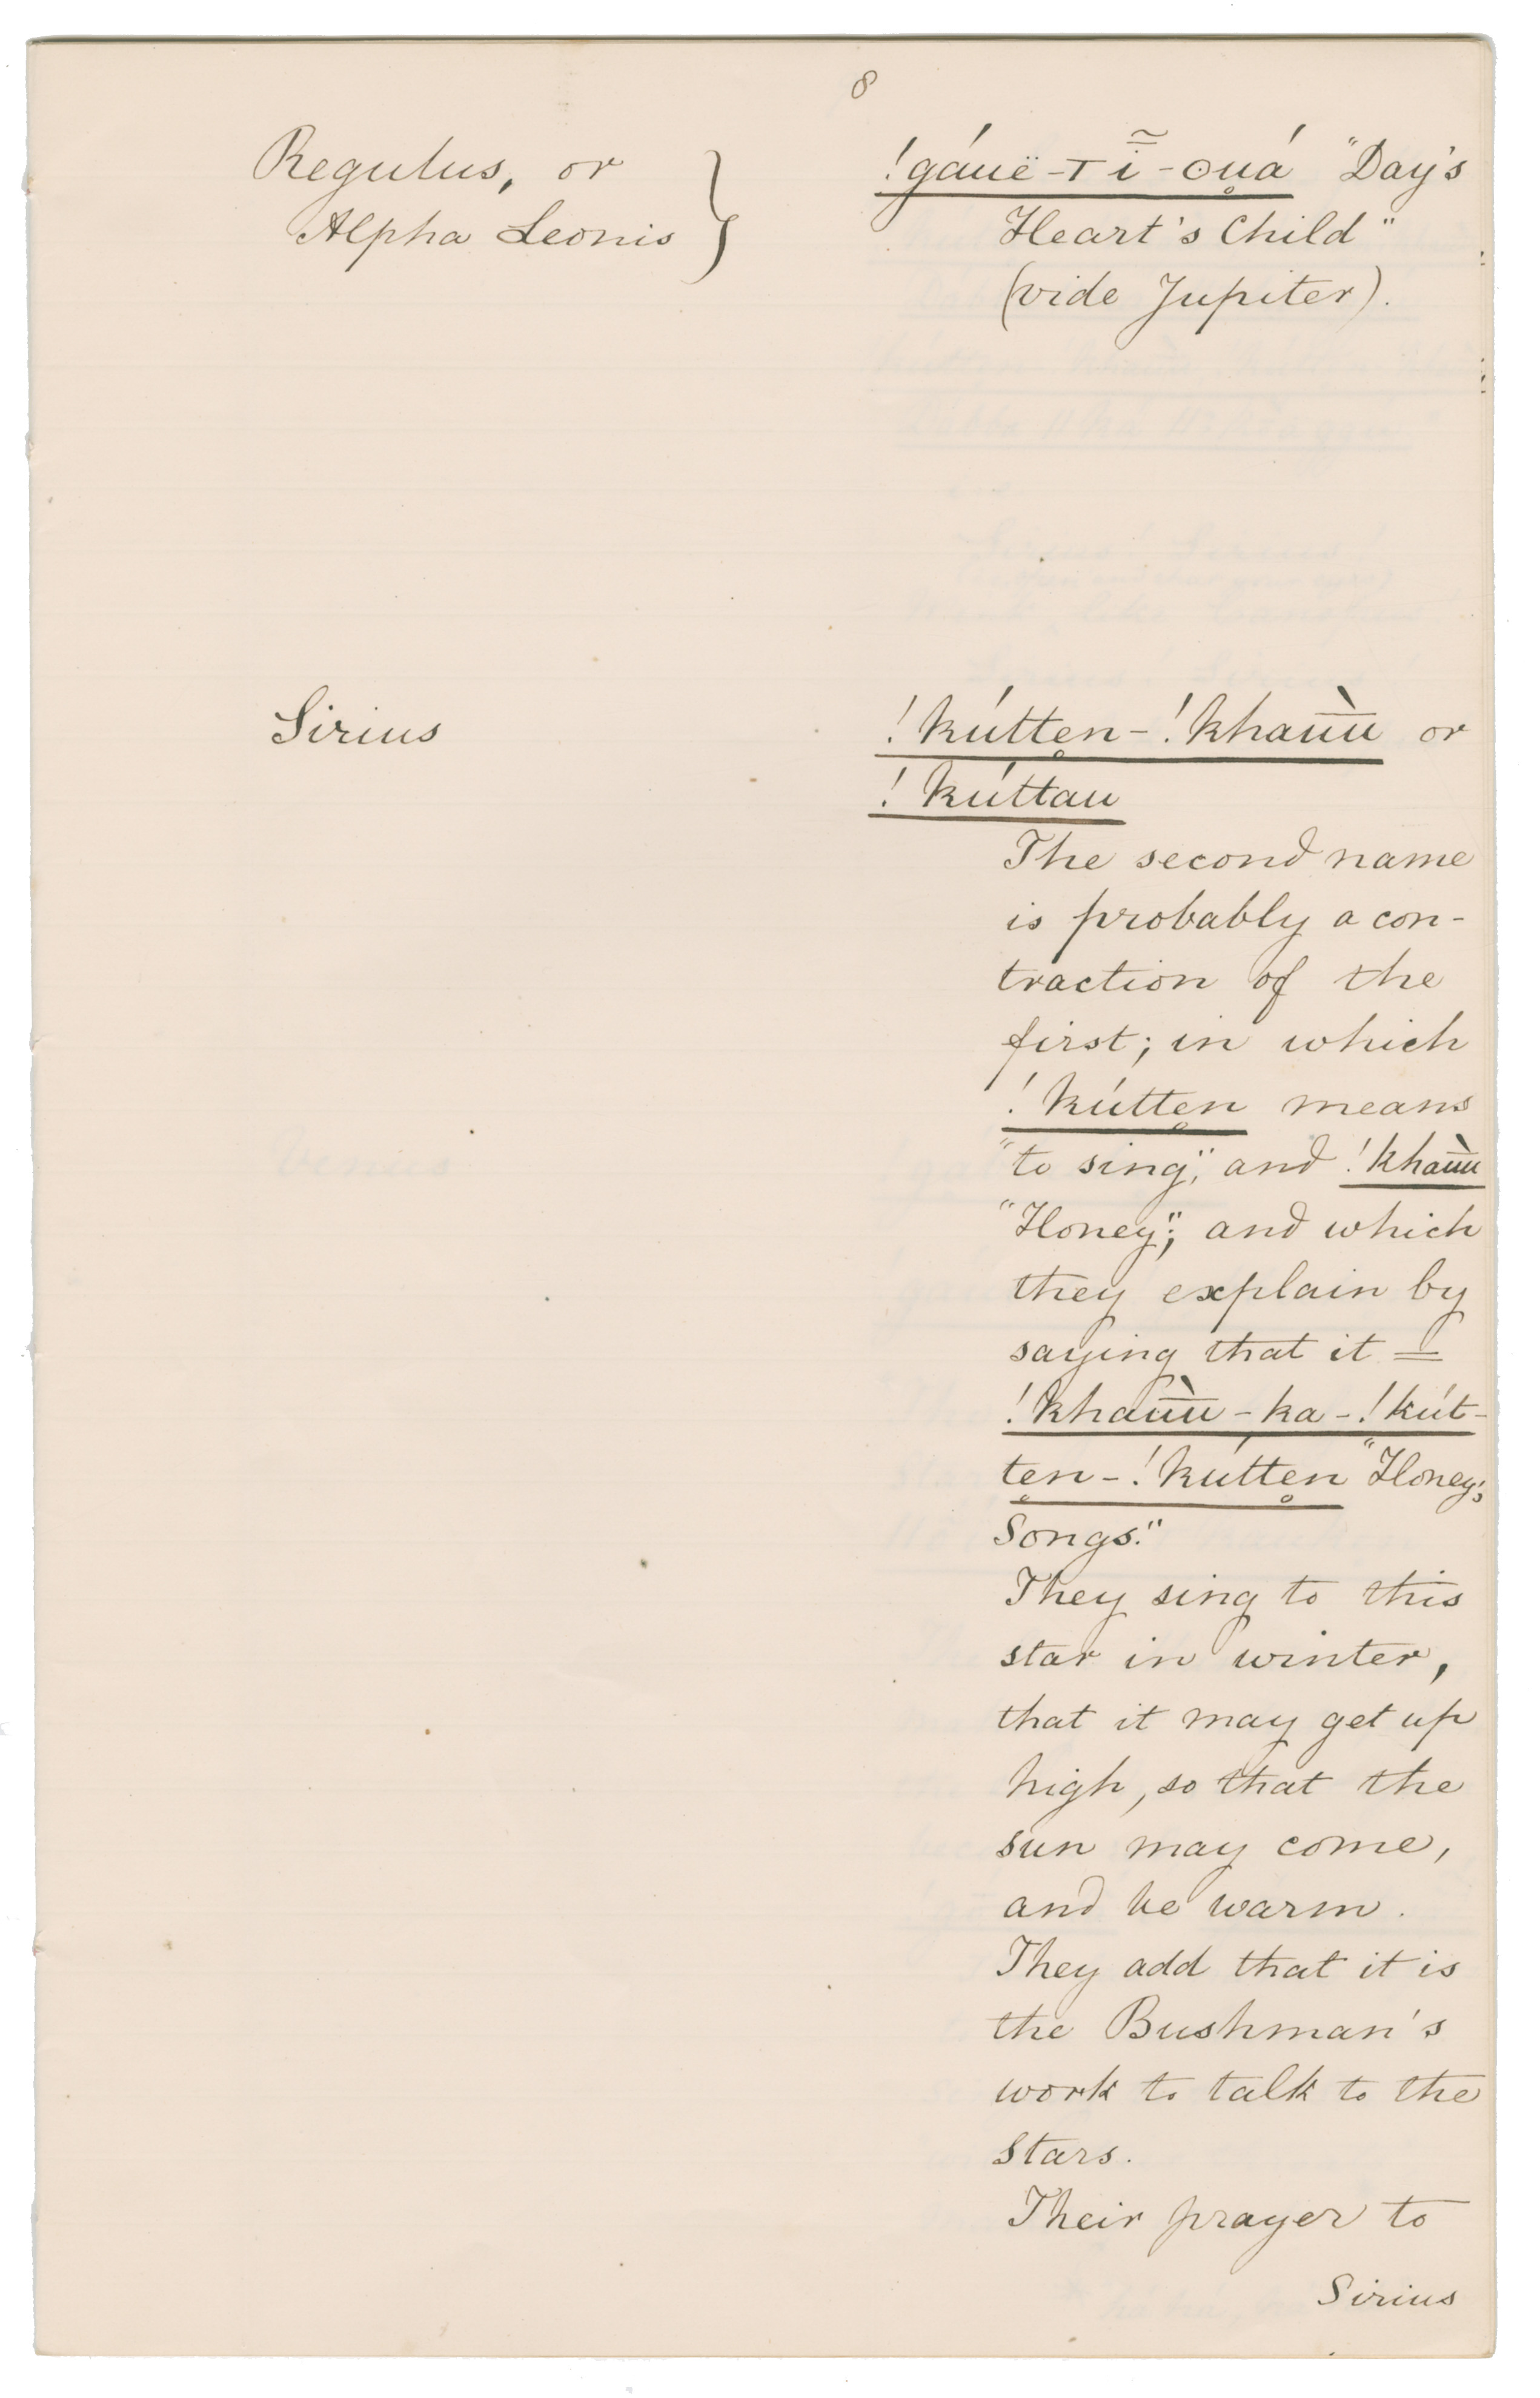 8
Regulus, or
Alpha Leonis }
!gáuë-ꓔĩ̄-ʘu̥á "Day's
Heart's Child"
(vide Jupiter).
Sirius
!kútte̥n-!khaū̀u̅ or
!kúttau
The second name
is probably a con-
traction of the
first; in which
!kútte̥n means
"to sing", and !khaū̀u̅
"Honey"; and which
they explain by
saying that it =
!khaū̀u̅-ka-!kút-
te̥n-!kútte̥n "Honey's
Songs."
They sing to this
star in winter,
that it may get up
high, so that the
sun may come,
and be warm.
They add that it is
the Bushman's
work to talk to the
Stars.
Their prayer to
Sirius